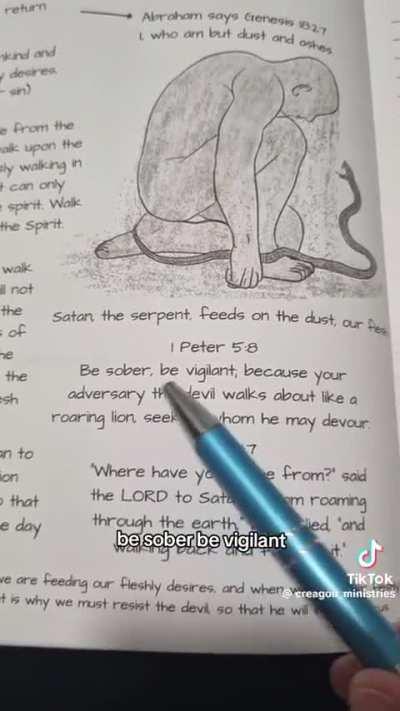 return
Abraham says Genesis 18:27
I, who am but dust and ashes
nkind and
desires.
sin)
e from the
alk upon the
ly walking in
t can only
spirit. Walk
the Spirit.
walk
ll not
the
s of
he
the
sh
Satan, the serpent, feeds on the dust, our
1 Peter 5:8
Be sober, be vigilant, because your
adversary the devil walks about like a
roaring lion, whom he may devour.
7
an to
ion
that
e day
"Where have from?" said
the LORD to roaming
through the earth, "and
walking back and it."
be sober be vigilant
we are feeding our fleshly desires, and when
t is why we must resist the devil, so that he will
TikTok
@creagon_ministries